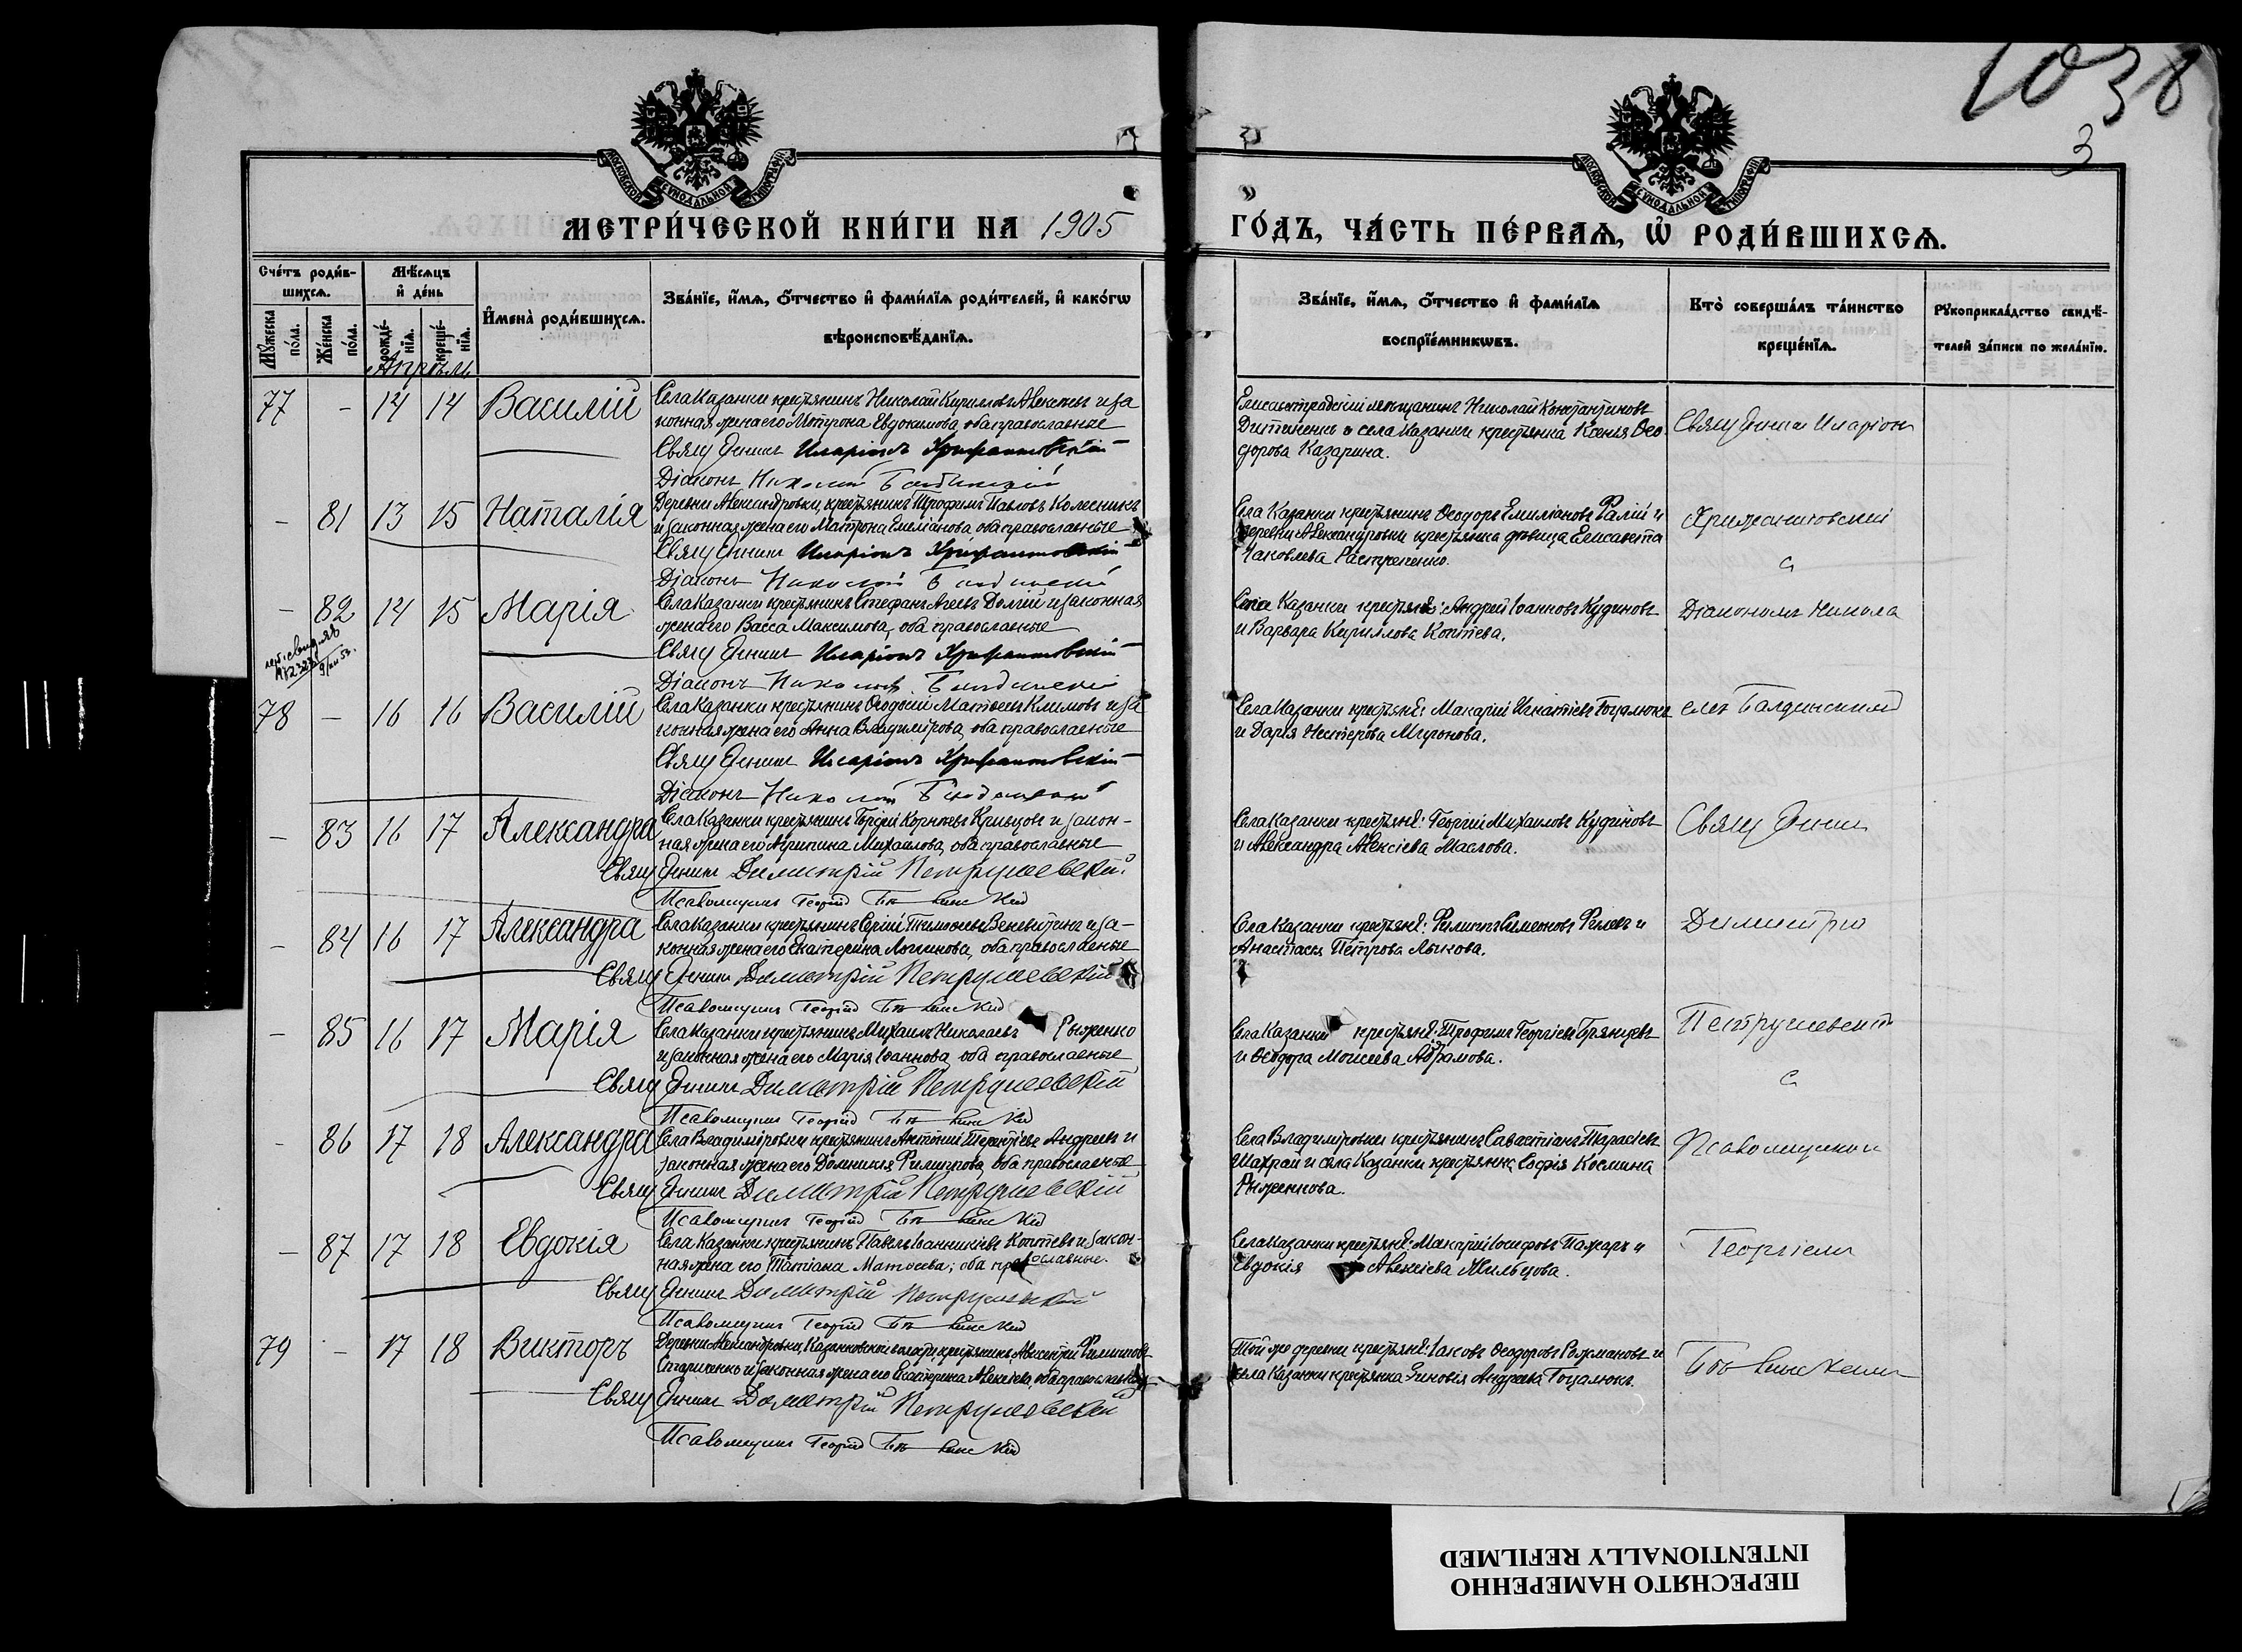 1038
3
МОСКОВСКОЙ СѴНОДАЛЬНОЙ ТИПОГРАФІИ
МОСКОВСКОЙ СѴНОДАЛЬНОЙ ТИПОГРАФІИ
МЕТРИ́ЧЕСКОЙ КНИ́ГИ НА 1905
ГО́ДЪ, ЧА́СТЬ ПЕ́РВАѦ, Ѽ РОДИ́ВШИХСѦ.
Сче́тъ роди́в-
шихсѧ.
Мꙋ́жеска по́ла.
Же́нска по́ла.
Мѣ́сѧцъ
и҆ де́нь
рожде́-
нїѧ.
креще́-
нїѧ.
И҆мена̀ роди́вшихсѧ.
Зва́нїе, и҆́мѧ, ѻ҆́тчество и҆ фами́лїѧ роди́телей, и҆ како́гѡ
вѣроисповѣ́данїѧ.
Зва́нїе, и҆́мѧ, ѻ҆́тчество и҆ фами́лїѧ
воспрїе́мникѡвъ.
Кто̀ соверша́лъ та́инство
креще́нїѧ.
Рꙋкоприкла́дство свидѣ́-
телей за́писи по жела́нїю.
Апрѣль
77 - 14 14 Василій
Села Казанки крестьянинъ Николай Кирилловъ Аксеновъ и за
конная жена его Мотрона Евдокимова, оба православные
Священникъ Иларіонъ
Діаконъ Николай
Елисаветградскій мѣщанинъ Николай Константиновъ
и села Казанки крестьянка Ксенія Ѳео
дорова Казарина.
Священникъ Иларіонъ
- 81 13 15 Наталія
Деревни Александровки, крестьянинъ Трофимъ Павловъ Колесникъ
и законная жена его Матрона Емеліанова, оба православные
Священникъ Иларіонъ
Діаконъ Николай
Села Казанки крестьянинъ Ѳеодоръ Емиліановъ Фалій и
деревни Александровки крестьянка дѣвица Елисавета
Іаковлева
с
- 82 14 15 Марія
Села Казанки крестьянинъ Стефанъ Агеевъ Долгій и законная
жена его Васса Максимова, оба православные
Священникъ Иларіонъ
Діаконъ Николай
Села Казанки крестьяне: Андрей Іоанновъ Кудиновъ
и Варвара Кириллова Коптева.
Діакономъ Никола
78 - 16 16 Василій
Села Казанки крестьянинъ Ѳеодосій Матѳеевъ Климовъ и за
конная жена его Анна Владимірова, оба православные
Священникъ Иларіонъ
Діаконъ Николай
Села Казанки крестьяне: Макарій Игнатіевъ Гоцалюкъ
и Дарія Нестерова Миронова.
емъ
- 83 16 17 Александра
Села Казанки крестьянинъ Корнѣевъ Кривцовъ и закон-
ная жена его Агрипина Михаилова, оба православные
Священникъ Димитрій Петрушевскій
Псаломщикъ Георгій
Села Казанки крестьяне: Георгій Михаиловъ Кудиновъ
и Александра Алексіева Маслова.
Священник
- 84 16 17 Александра
Села Казанки крестьянинъ Сергій Тимоѳеевъ Веневитинъ и за-
конная жена его Екатерина Логинова, оба православные
Священникъ Димитрій Петрушевскій
Псаломщикъ Георгій
Села Казанки крестьяне: Филиппъ Симеоновъ и
Анастасія Петрова Лыкова.
Димитрі
- 85 16 17 Марія
Села Казанки крестьянинъ Михаилъ Николаевъ Рыженко
и законная жена его Марія Іоаннова, оба православные
Священникъ Димитрій Петрушевскій
Псаломщикъ Георгій
Села Казанки крестьяне: Трофимъ Георгіевъ Брянцевъ
и Ѳеодора Моисеева Абрамова.
Петрушевски
с
- 86 17 18 Александра
Села Владиміровки крестьянинъ Антоній Терентіевъ Андреевъ и
законная жена его Домникія Филиппова, оба православные
Священникъ Димитрій Петрушевскій
Псаломщикъ Георгій
Села Владиміровки крестьянинъ Савастіанъ Тарасіевъ
Шахрай и села Казанки крестьянка Софія Космина
Рыженкова.
Псаломщикомъ
- 87 17 18 Евдокія
Села Казанки крестьянинъ Павелъ Іоанникіевъ Коптевъ и закон-
ная жена его Татіана Матѳеева; оба православные.
Священникъ Димитрій Петрушевскій
Псаломщикъ Георгій
Села Казанки крестьяне: Макарій Іосифовъ Пахарь и
Евдокія Алексіева Жильцова.
Георгіемъ
79 - 17 18 Викторъ
Деревни Александровки, Казанковской волости, крестьянинъ Авксентій Филипповъ
и законная жена его Екатерина Алексіева, оба православные
Священникъ Димитрій Петрушевскій
Псаломщикъ Георгій
Той же деревни крестьяне: Іаковъ Ѳеодоровъ Рожмановъ и
села Казанки крестьянка Зиновія Андреева Гоцалюкъ.
ПЕРЕСНЯТО НАМЕРЕННО
INTENTIONALLY REFILMED